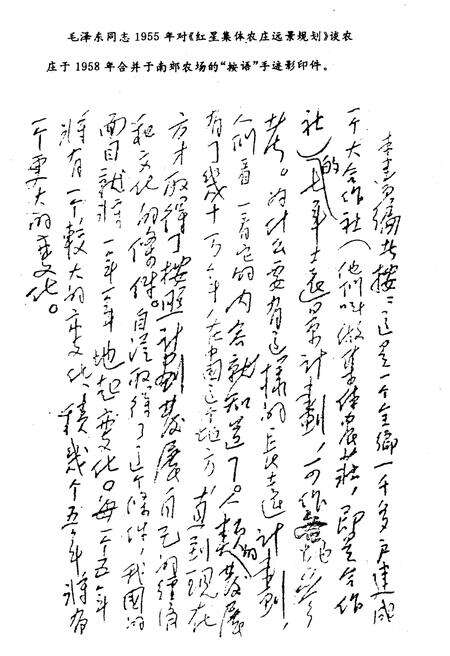 毛泽东同志 1955 年对《红星集体农庄远景规划》谈农
庄于 1958 年合并于南郊农场的“按语”手迹影印件。
本書编者按：这是一个全鄉一千多户建成
一个大合作社（他们叫做集体农莊，即是合作
社）的七年远景計劃，可作各地参
考。为什么要有这样的長远計劃，
人们看一看它的内容就知道了。人類的发展
有了幾十万年，在中國这个地方，直到现在
方才取得了按照計劃发展自己的經济
和文化的條件。自從取得了这个條件，我國的
面目就將一年一年地起变化。每一个五年
將有一个較大的变化，積幾个五年將有
一个更大的变化。